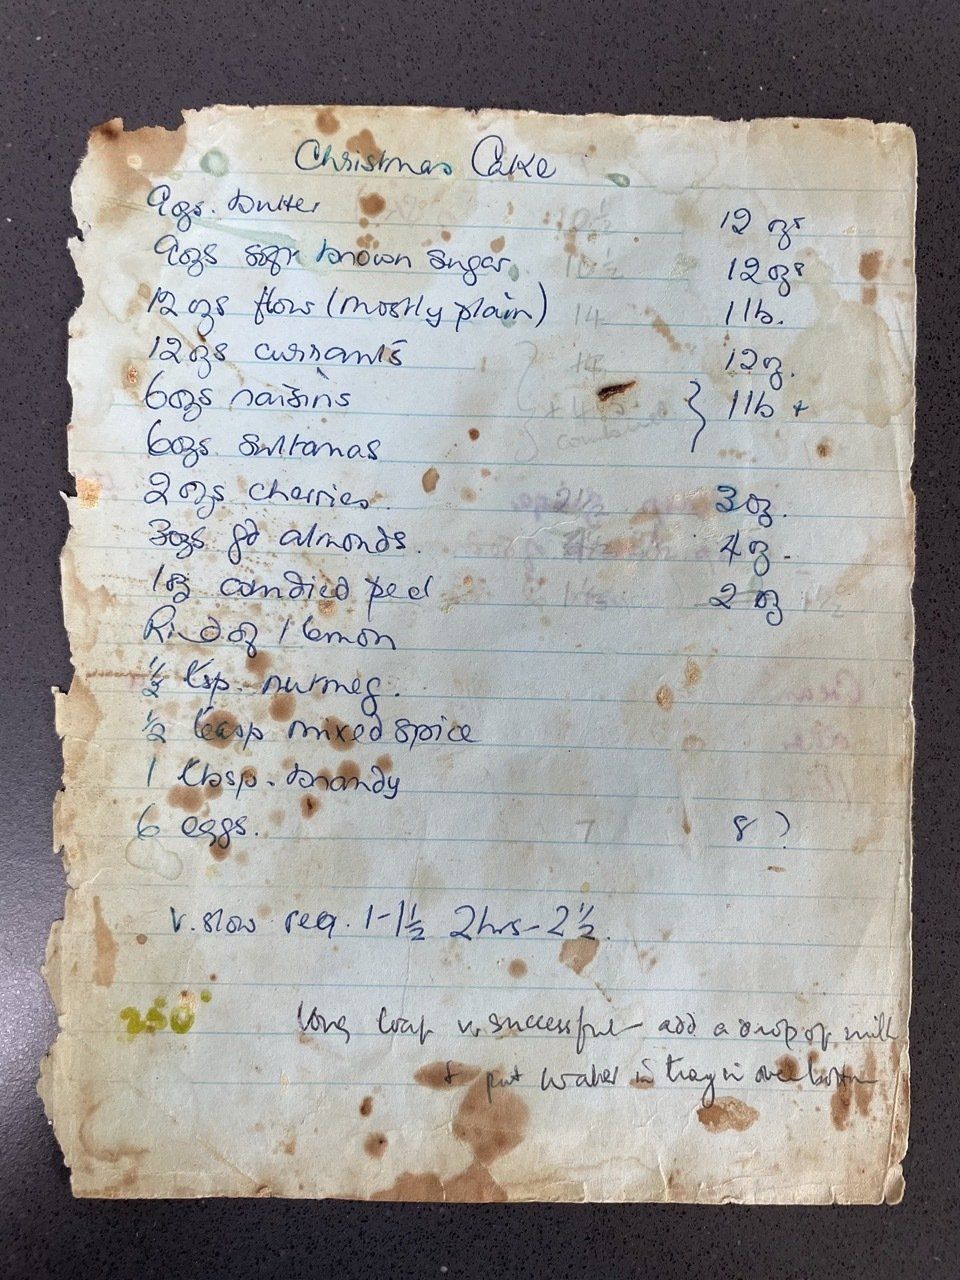 Christmas Cake
9ozs. butter 12 ozs
9ozs brown sugar 10 ½ 12ozs
12 ozs flour (mostly plain) 14 1lb.
12 ozs currants 14 12oz.
6ozs raisins } 1lb +
6ozs sultanas combined
2 ozs cherries. 2½ 3oz.
3ozs gd almonds. 3½ 4 oz.
1oz candied peel 1½ 2 oz
Rind of 1 lemon
½ tsp. nutmeg.
½ teasp mixed spice
1 tbsp. brandy
6 eggs. 7 8 ?
v. slow reg. 1-1½ 2hrs - 2½.
250° long loaf v. successful add a drop of milk
& put water in tray in oven bottom